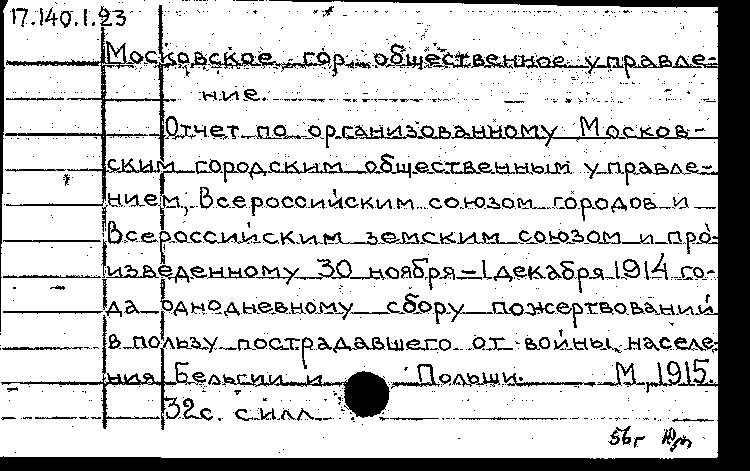 17.140.1.23
Московское гор. общественное управле-
ние.
Отчет по организованному Москов-
ским городским общественным управле-
нием, Всероссийским союзом городов и
Всероссийским земским союзом и про-
изведенному 30 ноября-1 декабря 1914 го-
да однодневному сбору пожертвований
в пользу пострадавшего от войны населе-
ния Бельгии и Польши. М, 1915.
32с. с илл
56г